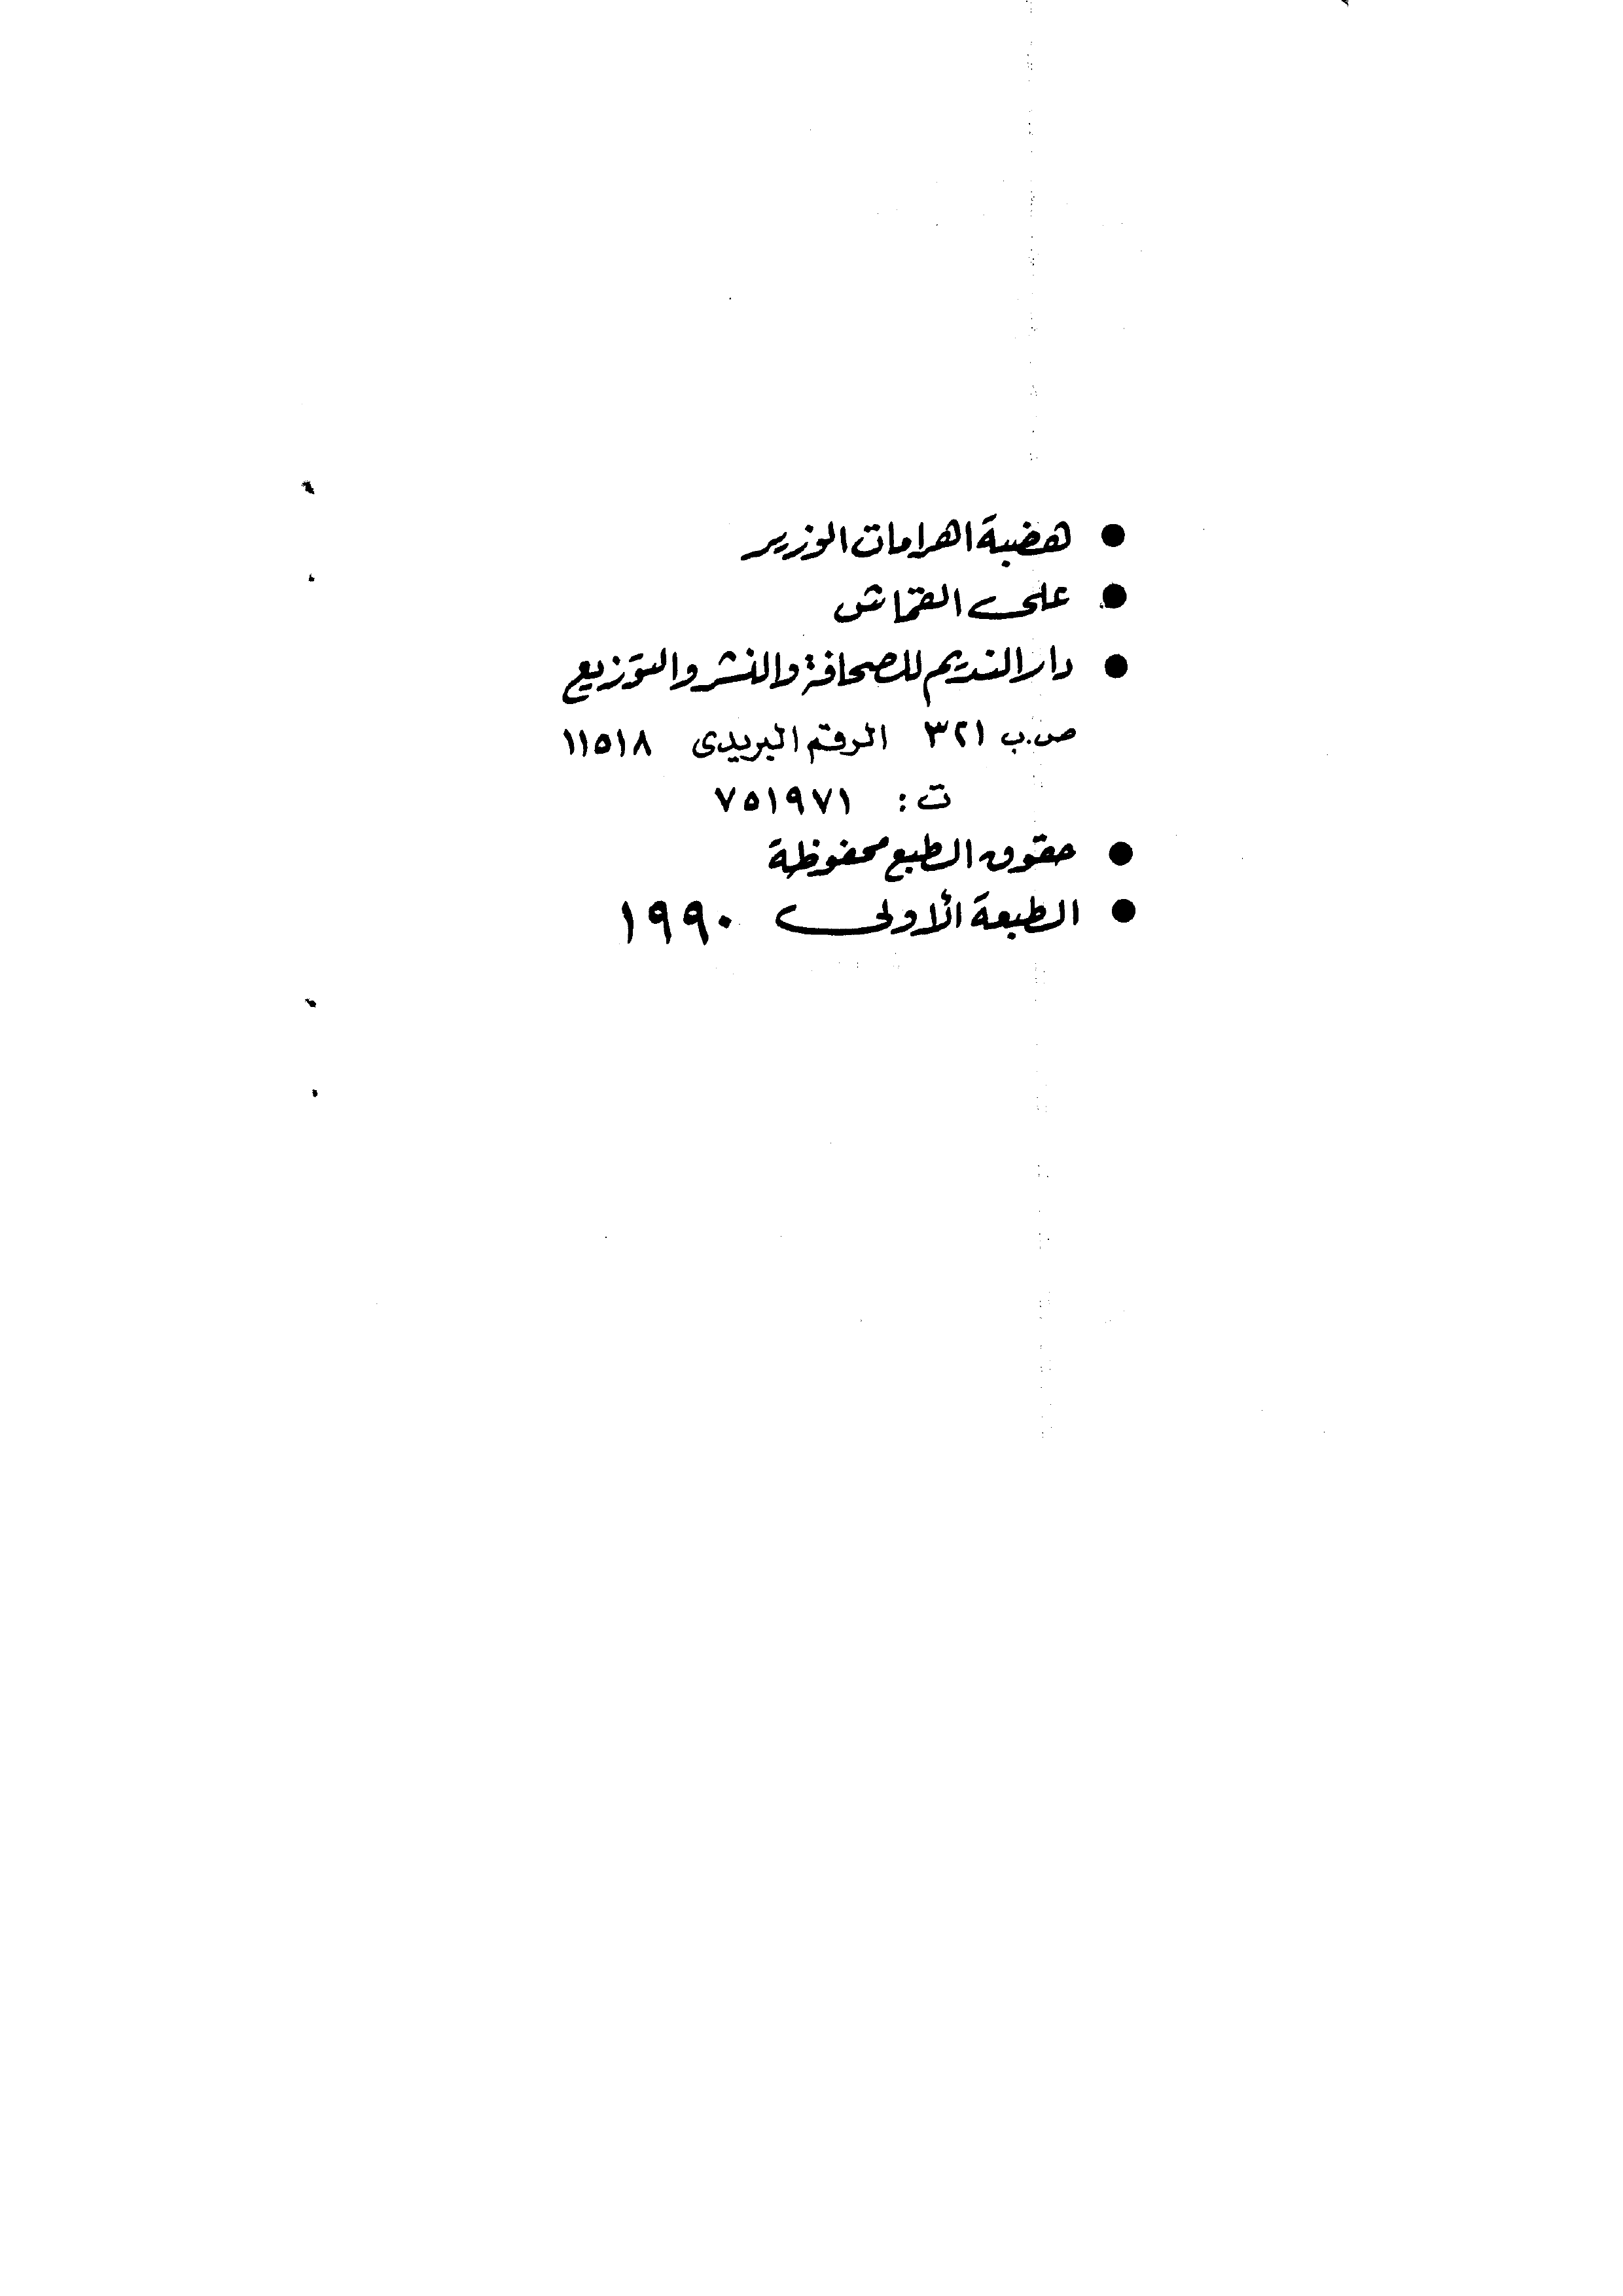 ● هضبة اهرامات الوزير
● على القماش
● دار النديم للصحافة والنشر والتوزيع
ص.ب ٣٢١ الرقم البريدى ١١٥١٨
ت : ٧٥١٩٧١
● حقوق الطبع محفوظة
● الطبعة الأولى ١٩٩٠